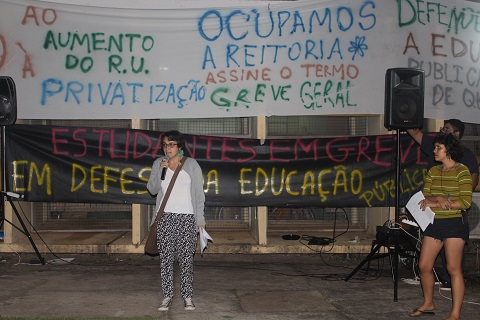 AO
AUMENTO
DO R.U.
À
PRIVATIZAÇÃO
OCUPAMOS
A REITORIA
ASSINE O TERMO
GREVE GERAL
DEFENDE
A EDU
PÚBLICA
DE QU
ESTUDANTES EM GREVE
EM DEFESA DA EDUCAÇÃO
PÚBLICA